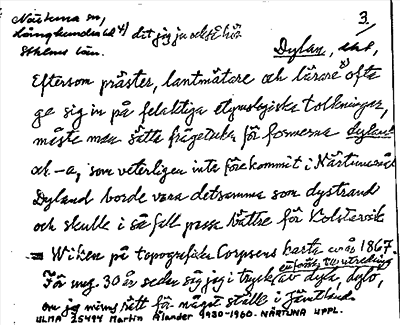 Närtuna sn,
Långhundra hd 4) det jag ju också hör
Sthlms län.
3.
Dylan, del,
Eftersom präster, lantmätare och lärare ofta
ge sig in på felaktiga etymologiska tolkningar,
måste man sätta frågetecken för formerna Dyland
och -a, som veterligen inte förekommit i Närtuna
Dyland borde vara detsamma som dystrand
och skulle i så fall passa bättre för Kolstervik
= Wiken på topografiska Corpsens karta från år 1867.
För ung. 30 år sedan såg jag i tryck en försök till utredning av dyla, dylö,
om jag minns rätt för något ställe i Jämtland.
ULMA 25497 Martin Ålander 1930-1960. NÄRTUNA UPPL.